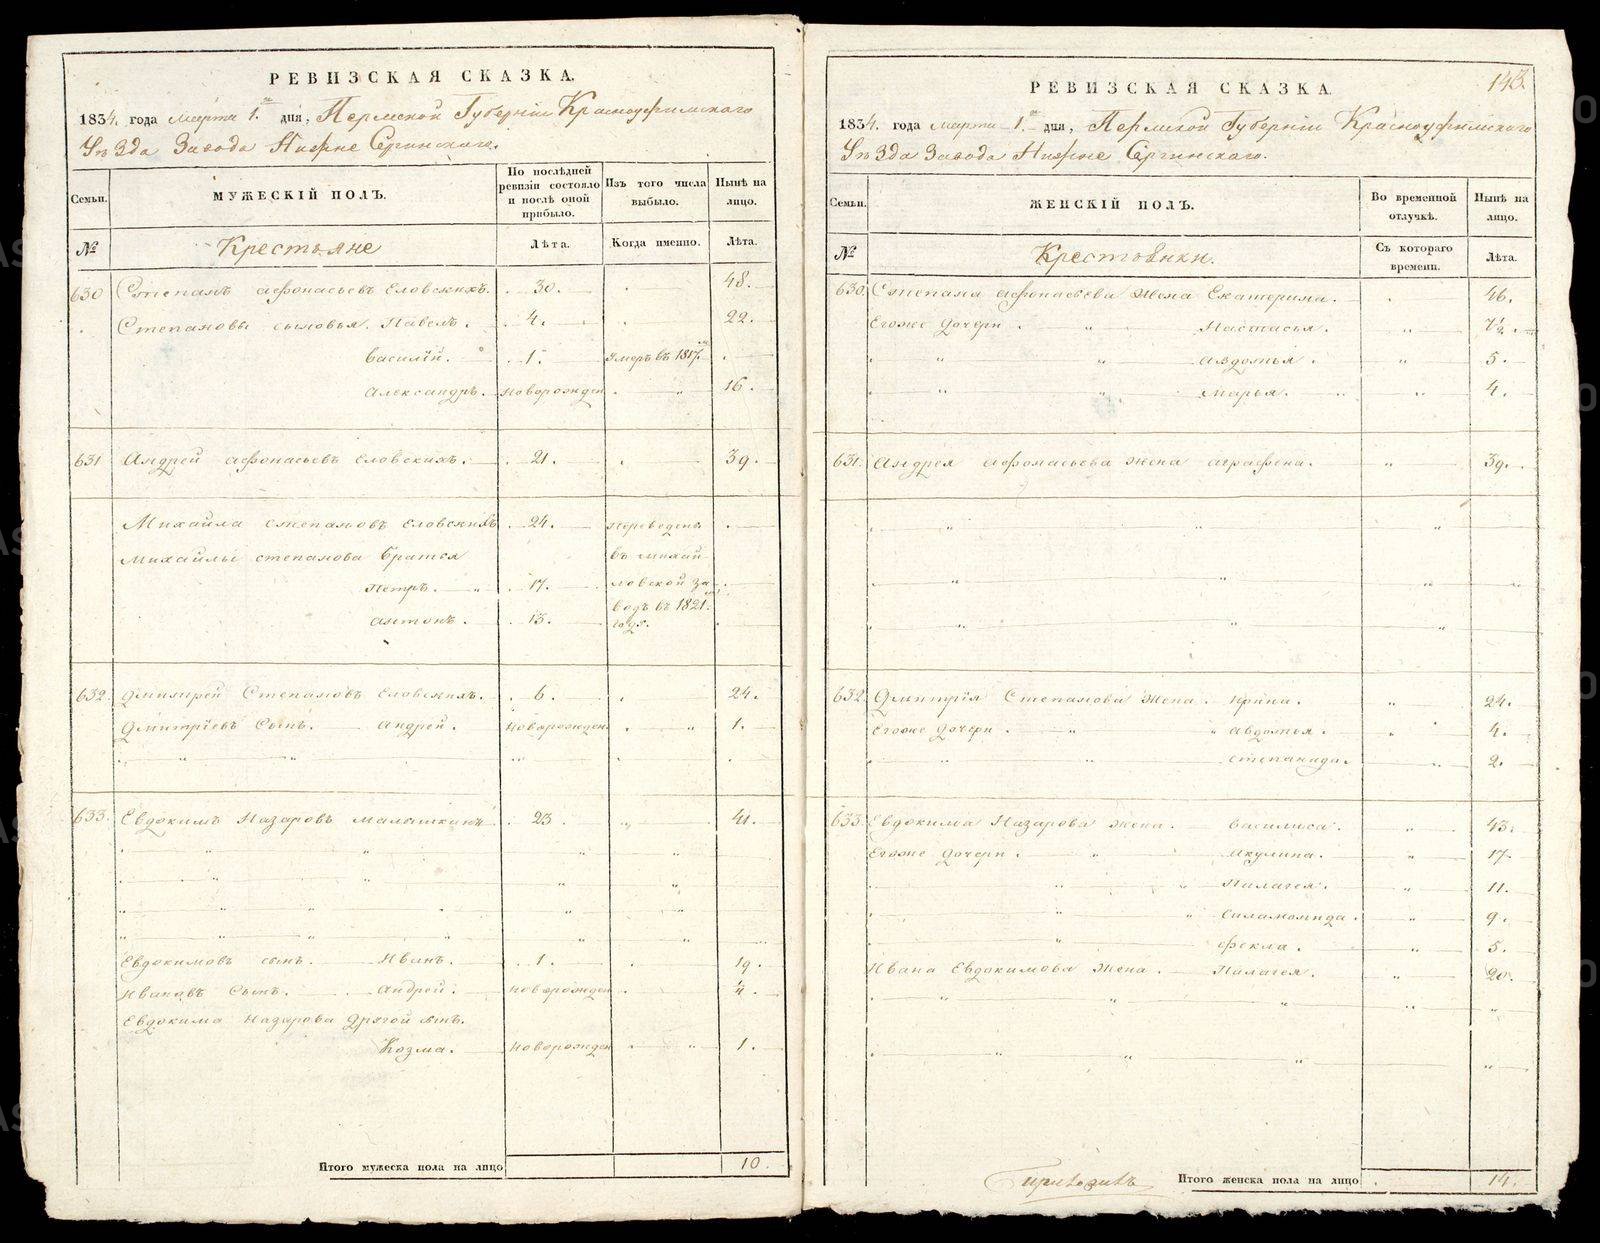 РЕВИЗСКАЯ СКАЗКА.
1834. года марта 1. дня, Пермской Губернiи Красноуфимского
Уѣзда Завода Нижне Сергинскаго.
Семьи. МУЖЕСКIЙ ПОЛЪ. По послѣдней ревизiи состояло и послѣ оной прибыло. Изъ того числа выбыло. Нынѣ на лицо.
№ Крестьяне Лѣта. Когда именно. Лѣта.
630 Степанъ Афонасьевъ Еловскихъ. 30. 48.
Степановы сыновья. Павелъ. 4. 22.
Василiй. 1. умеръ въ 1817.
Александръ. новорожден 16.
631 Андрей Афонасьевъ Еловскихъ. 21. 39.
Михайла Степановъ Еловскихъ 24. переведены
Михайлы Степанова братья въ Михай
Петръ. 17. ловской за
Антонъ. 13. водъ въ 1821. годѣ.
632. Дмитрей Степановъ Еловскихъ. 6. 24.
Дмитрiевъ Сынъ. Андрей. новорожден. 1.
633. Евдокимъ Назаровъ Малышкинъ 23 41.
Евдокимовъ сынъ. Иванъ. 1. 19.
Ивановъ Сынъ. Андрей. новорожден 1/4.
Евдокима Назарова другой сынъ.
Козма. новорожден 1.
Итого мужеска пола на лицо 10.
143.
РЕВИЗСКАЯ СКАЗКА.
1834. года марта 1. дня, Пермской Губернiи Красноуфимского
Уѣзда Завода Нижне Сергинскаго.
Семьи. ЖЕНСКIЙ ПОЛЪ. Во временной отлучкѣ. Нынѣ на лицо.
№ Крестьянки. Съ котораго времени. Лѣта.
630. Степана Афонасьева жена Екатерина. 46.
Егоже дочери. Настасья. 7 1/2.
Авдотья. 5.
Марья. 4.
631. Андрея Афонасьева жена Аграфена. 39.
632. Дмитрiя Степанова жена. Ирина. 24.
Егоже дочери. Авдотья. 4.
Степанида. 2.
633. Евдокима Назарова жена. Василиса. 43.
Егоже дочери. Акулина. 17.
Палагея. 11.
Соламонида. 9.
Фекла. 5.
Ивана Евдокимова жена. Палагея. 20.
Итого женска пола на лицо 14.